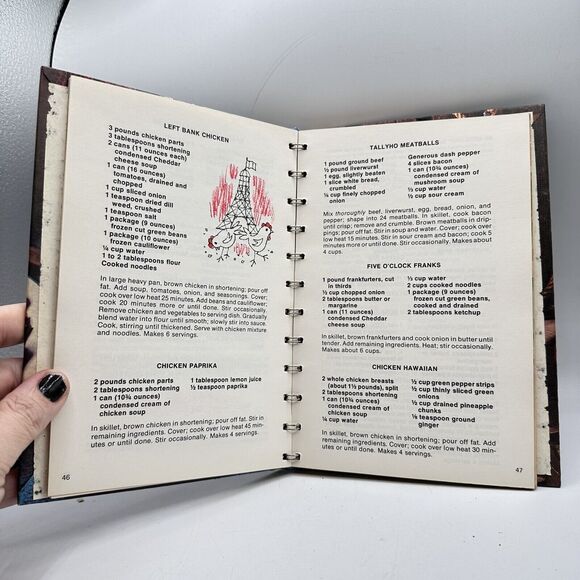 LEFT BANK CHICKEN
3 pounds chicken parts
3 tablespoons shortening
2 cans (11 ounces each)
condensed Cheddar
cheese soup
1 can (16 ounces)
tomatoes, drained and
chopped
1 cup sliced onion
1 teaspoon dried dill
weed, crushed
1 teaspoon salt
1 package (9 ounces)
frozen cut green beans
1 package (10 ounces)
frozen cauliflower
¼ cup water
1 to 2 tablespoons flour
Cooked noodles
In large heavy pan, brown chicken in shortening; pour off
fat. Add soup, tomatoes, onion, and seasonings. Cover;
cook over low heat 25 minutes. Add beans and cauliflower;
cook 20 minutes more or until done. Stir occasionally.
Remove chicken and vegetables to serving dish. Gradually
blend water into flour until smooth; slowly stir into sauce.
Cook, stirring until thickened. Serve with chicken mixture
and noodles. Makes 6 servings.
CHICKEN PAPRIKA
2 pounds chicken parts
2 tablespoons shortening
1 can (10¾ ounces)
condensed cream of
chicken soup
1 tablespoon lemon juice
½ teaspoon paprika
In skillet, brown chicken in shortening; pour off fat. Stir in
remaining ingredients. Cover; cook over low heat 45 min-
utes or until done. Stir occasionally. Makes 4 servings.
46
TALLYHO MEATBALLS
1 pound ground beef
½ pound liverwurst
1 egg, slightly beaten
1 slice white bread,
crumbled
¼ cup finely chopped
onion
Generous dash pepper
4 slices bacon
1 can (10¾ ounces)
condensed cream of
mushroom soup
½ cup water
½ cup sour cream
Mix thoroughly beef, liverwurst, egg, bread, onion, and
pepper; shape into 24 meatballs. In skillet, cook bacon
until crisp; remove and crumble. Brown meatballs in drip-
pings; pour off fat. Stir in soup and water. Cover; cook over
low heat 15 minutes. Stir in sour cream and bacon; cook 5
minutes more or until done. Stir occasionally. Makes about
4 cups.
FIVE O'CLOCK FRANKS
1 pound frankfurters, cut
in thirds
½ cup chopped onion
2 tablespoons butter or
margarine
1 can (11 ounces)
condensed Cheddar
cheese soup
½ cup water
2 cups cooked noodles
1 package (9 ounces)
frozen cut green beans,
cooked and drained
2 tablespoons ketchup
In skillet, brown frankfurters and cook onion in butter until
tender. Add remaining ingredients. Heat; stir occasionally.
Makes about 6 cups.
CHICKEN HAWAIIAN
2 whole chicken breasts
(about 1½ pounds), split
2 tablespoons shortening
1 can (10¾ ounces)
condensed cream of
chicken soup
¼ cup water
½ cup green pepper strips
½ cup thinly sliced green
onions
½ cup drained pineapple
chunks
⅛ teaspoon ground
ginger
In skillet, brown chicken in shortening; pour off fat. Stir in
remaining ingredients. Cover; cook over low heat 30 min-
utes or until done. Stir occasionally. Makes 4 servings.
47